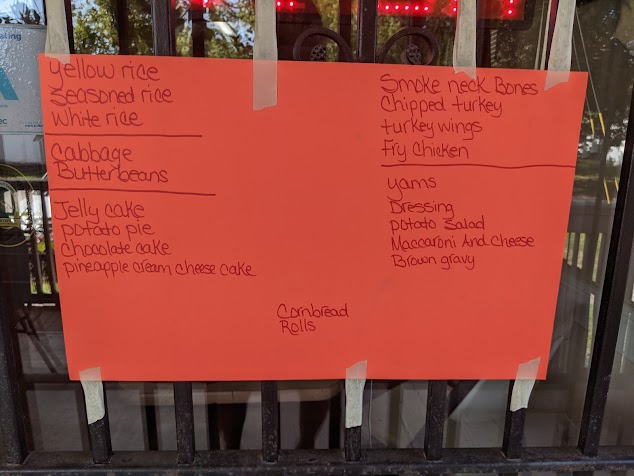 Yellow rice
Seasoned rice
White rice
Cabbage
Butterbeans
Jelly cake
potato pie
chocolate cake
pineapple cream cheese cake
Smoke neck Bones
Chipped turkey
turkey wings
Fry Chicken
yams
Dressing
potato Salad
Maccaroni And cheese
Brown gravy
Cornbread
Rolls